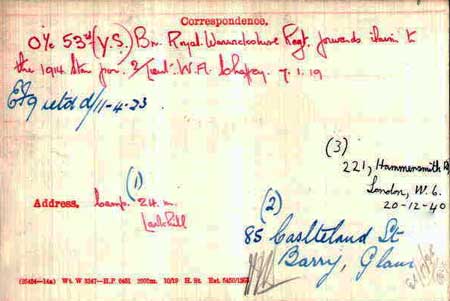 Correspondence.
O i/c 53rd (Y.S.) Bn. Royal Warwickshire Regt. forwards claim to
the 1914 Star for 2/Lieut: W.A. 7.1.19
d/11-4-23.
(3)
221, Hammersmith Rd
London, W.6.
20-12-40
(1)
Address, Camp. 24. m.
Larkhill
(2)
85 Castleland St
Barry, Glam
(25454-14a) Wt. W 3247-H.P. 6481 2000m. 10/19 H. St.